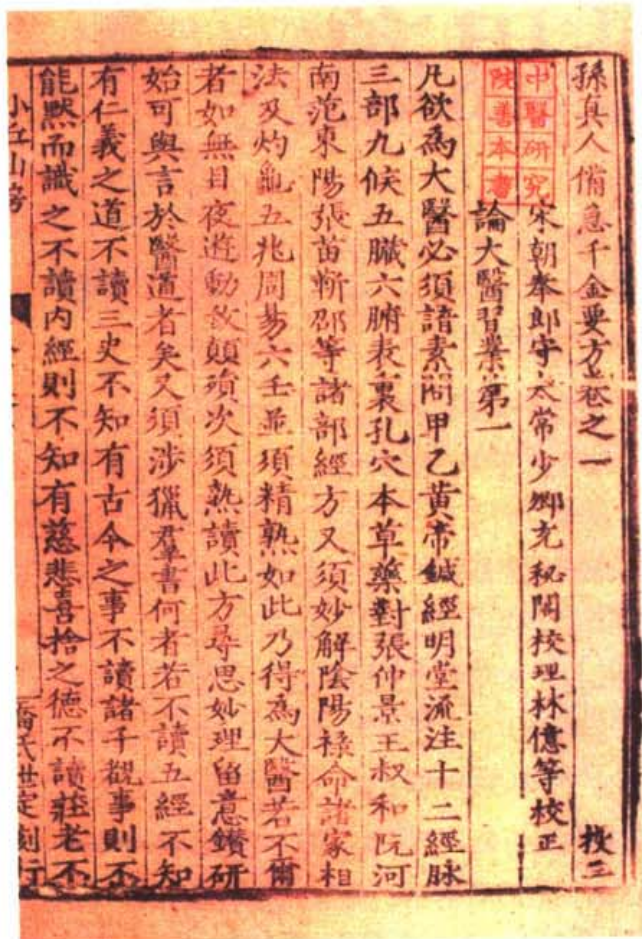 孫真人備急千金要方卷之一 投三
宋朝奉郎守太常少卿充秘閣校理林億等校正
中醫研究
院善本書
論大醫習業第一
凡欲為大醫必須諳素問甲乙黃帝鍼經明堂流注十二經脉
三部九候五臟六腑表裏孔穴本草藥對張仲景王叔和阮河
南范東陽張苗靳邵等諸部經方又須妙解陰陽祿命諸家相
法及灼龜五兆周易六壬並須精熟如此乃得為大醫若不爾
者如無目夜遊動致顛殞次須熟讀此方尋思妙理留意鑽研
始可與言於醫道者矣又須涉獵羣書何者若不讀五經不知
有仁義之道不讀三史不知有古今之事不讀諸子觀事則不
能默而識之不讀內經則不知有慈悲喜捨之德不讀莊老不
小丘山房
喬氏世定刻行